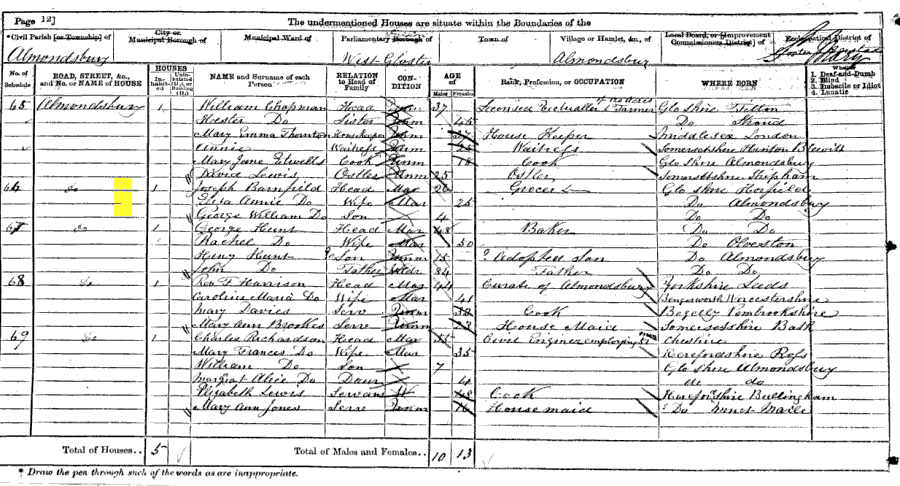 Page 12]
The undermentioned Houses are situate within the Boundaries of the
*Civil Parish [or Township] of
City or Municipal Borough of
Municipal Ward of
Parliamentary Borough of
Town of
Village or Hamlet, &c., of
Local Board, or [Improvement Commissioners District] of
Ecclesiastical District of
Almondsbury
West Gloster
Almondsbury
No. of Schedule
ROAD, STREET, &c., and No. or NAME of HOUSE
HOUSES
NAME and Surname of each Person
RELATION to Head of Family
CONDITION
AGE of
Males
Females
Rank, Profession, or OCCUPATION
WHERE BORN
1. Deaf-and-Dumb
2. Blind
3. Imbecile or Idiot
4. Lunatic
65 Almondsbury 1 William Chapman Head Unm 37 Licensed Victualler & Farmer Glo shire Filton
Hester Do Sister Unm 45 Do Stroud
Mary Emma Thornton Housekeeper Unm 37 House Keeper Middlesex London
Annie Waitress Unm Waitress Somersetshire Hinton Blewitt
Mary Jane Cook Unm 18 Cook Glo shire Almondsbury
David Lewis Ostler Unm 25 Ostler Somersetshire Shipham
66 Do 1 Joseph Barnfield Head Mar 26 Grocer Glo shire Horfield
Annie Do Wife Mar 25 Do Almondsbury
George William Do Son 4 Do Do
67 Do 1 George Hunt Head Mar 48 Baker Do Do
Rachel Do Wife Mar 50 Do Olveston
Henry Hunt Son Unm 15 ? Adopted Son Do Almondsbury
John Do Father Widr 84 Father Do Do
68 Do 1 Rev F Harrison Head Mar 44 Curate of Almondsbury Yorkshire Leeds
Caroline Maria Do Wife Mar 41 Bengeworth Worcestershire
Mary Davies Serv Unm 30 Cook Begelly Pembrokeshire
Mary Ann Brookes Serv Unm 23 House Maid Somersetshire Bath
69 Do 1 Charles Richardson Head Mar 55 Civil Engineer employing Cheshire
Mary Frances Do Wife Mar 35 Herefordshire Ross
William Do Son 7 Glo shire Almondsbury
Margaret Alice Do Daur 4 do do
Elizabeth Lewis Servant W 48 Cook Herefordshire Bullingham
Mary Ann Jones Serve Unm 16 Housemaid Do
Total of Houses.. 5
Total of Males and Females.. 10 13
* Draw the pen through such of the words as are inappropriate.